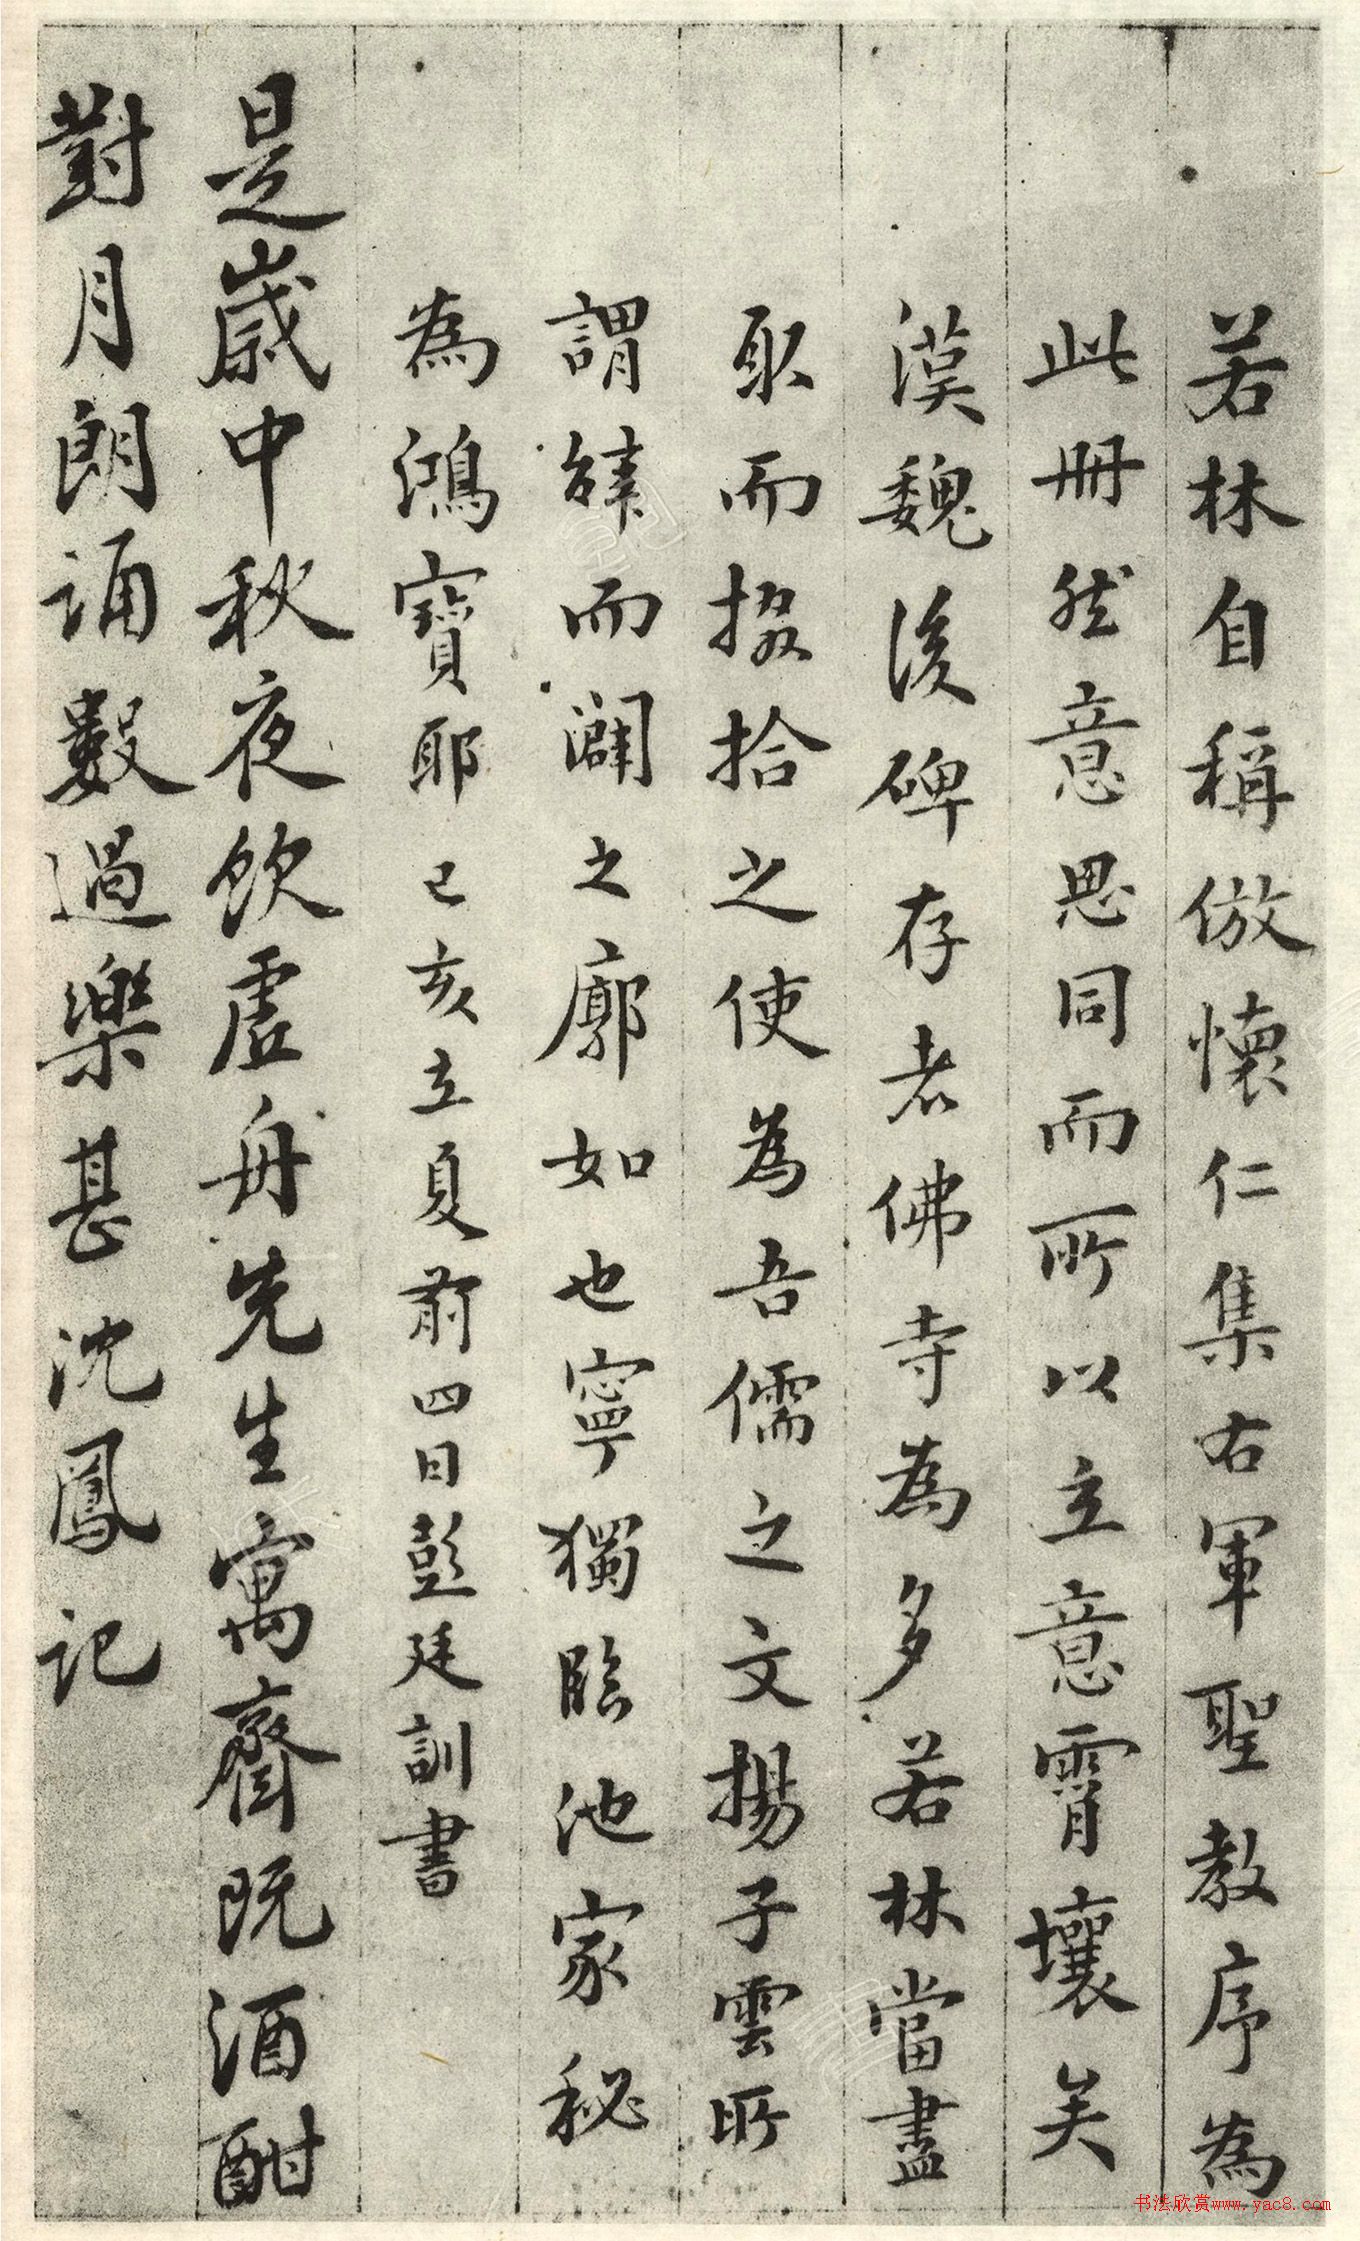 若林自稱倣懷仁集右軍聖教序為
此冊然意思同而所以立意霄壤矣
漢魏後碑存者佛寺為多若林當盡
取而掇拾之使為吾儒之文揚子雲所
謂緈而闢之廓如也寧獨臨池家秘
為鴻寶耶己亥立夏前四日彭廷訓書
是歲中秋夜飲虛舟先生寓齋既酒酣
對月朗誦數過樂甚沈鳳記
书法欣赏www.yac8.com